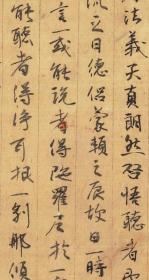 法義天真朗然启悟聽者
流之日德侶蒙頼之辰故日一時
言一或能说者得陁羅尼於一
能聽者得淨耳根一刹那頃